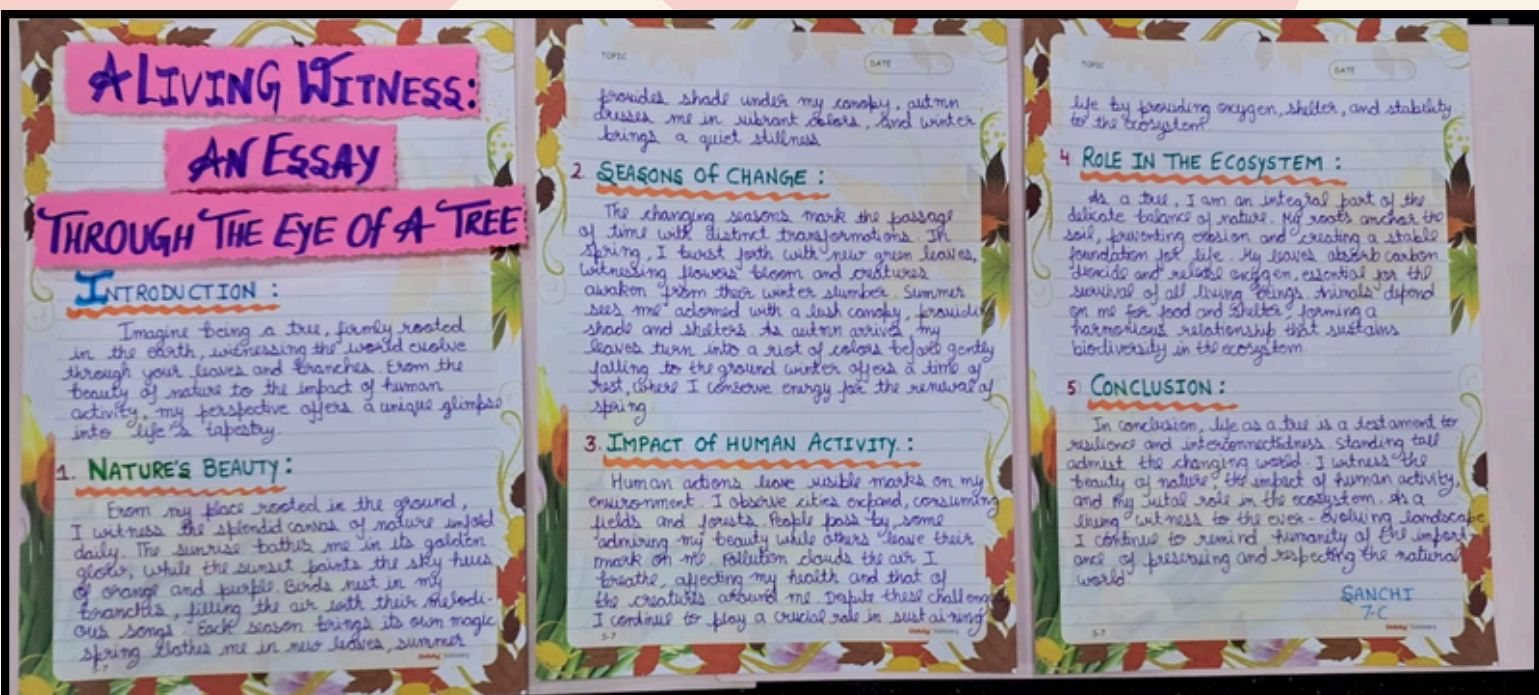 A LIVING WITNESS:
AN ESSAY
THROUGH THE EYE OF A TREE
INTRODUCTION :
Imagine being a tree, firmly rooted
in the earth, witnessing the world evolve
through your leaves and branches. From the
beauty of nature to the impact of human
activity, my perspective offers a unique glimpse
into life's tapestry.
1. NATURE'S BEAUTY :
From my place rooted in the ground,
I witness the splendid canvas of nature unfold
daily. The sunrise bathes me in its golden
glow, while the sunset paints the sky hues
of orange and purple. Birds nest in my
branches, filling the air with their melodi-
ous songs. Each season brings its own magic
spring clothes me in new leaves, summer
TOPIC
DATE
provides shade under my canopy, autmn
dresses me in vibrant colors, and winter
brings a quiet stillness
2. SEASONS OF CHANGE :
The changing seasons mark the passage
of time with distinct transformations. In
spring, I burst forth with new green leaves,
witnessing flowers bloom and creatures
awaken from their winter slumber. Summer
sees me adorned with a lush canopy, providing
shade and shelters. As autmn arrives, my
leaves turn into a riot of colors before gently
falling to the ground winter offers a time of
rest, where I conserve energy for the renewal of
spring.
3. IMPACT OF HUMAN ACTIVITY. :
Human actions leave visible marks on my
environment. I observe cities expand, consuming
fields and forests. People pass by, some
admiring my beauty while others leave their
mark on me. Pollution clouds the air I
breathe, affecting my health and that of
the creatures around me. Dispite these challenges
I continue to play a crucial role in sustaining
S-7
TOPIC
DATE
life by providing oxygen, shelter, and stability
to the ecosystem.
4 ROLE IN THE ECOSYSTEM :
As a tree, I am an integral part of the
delicate balance of nature. My roots anchor the
soil, preventing erosion and creating a stable
foundation for life. My leaves absorb carbon
dioxide and release oxygen, essential for the
survival of all living beings. Animals depend
on me for food and shelter, forming a
harmonious relationship that sustains
biodiversity in the ecosystem.
5 CONCLUSION :
In conclusion, life as a tree is a testament to
resilience and interconnectedness. Standing tall
admist the changing world. I witness the
beauty of nature, the impact of human activity,
and my vital role in the ecosystem. As a
living witness to the ever-evolving landscape
I continue to remind humanity of the import-
ance of preserving and respecting the natural
world.
SANCHI
7-C
S-7